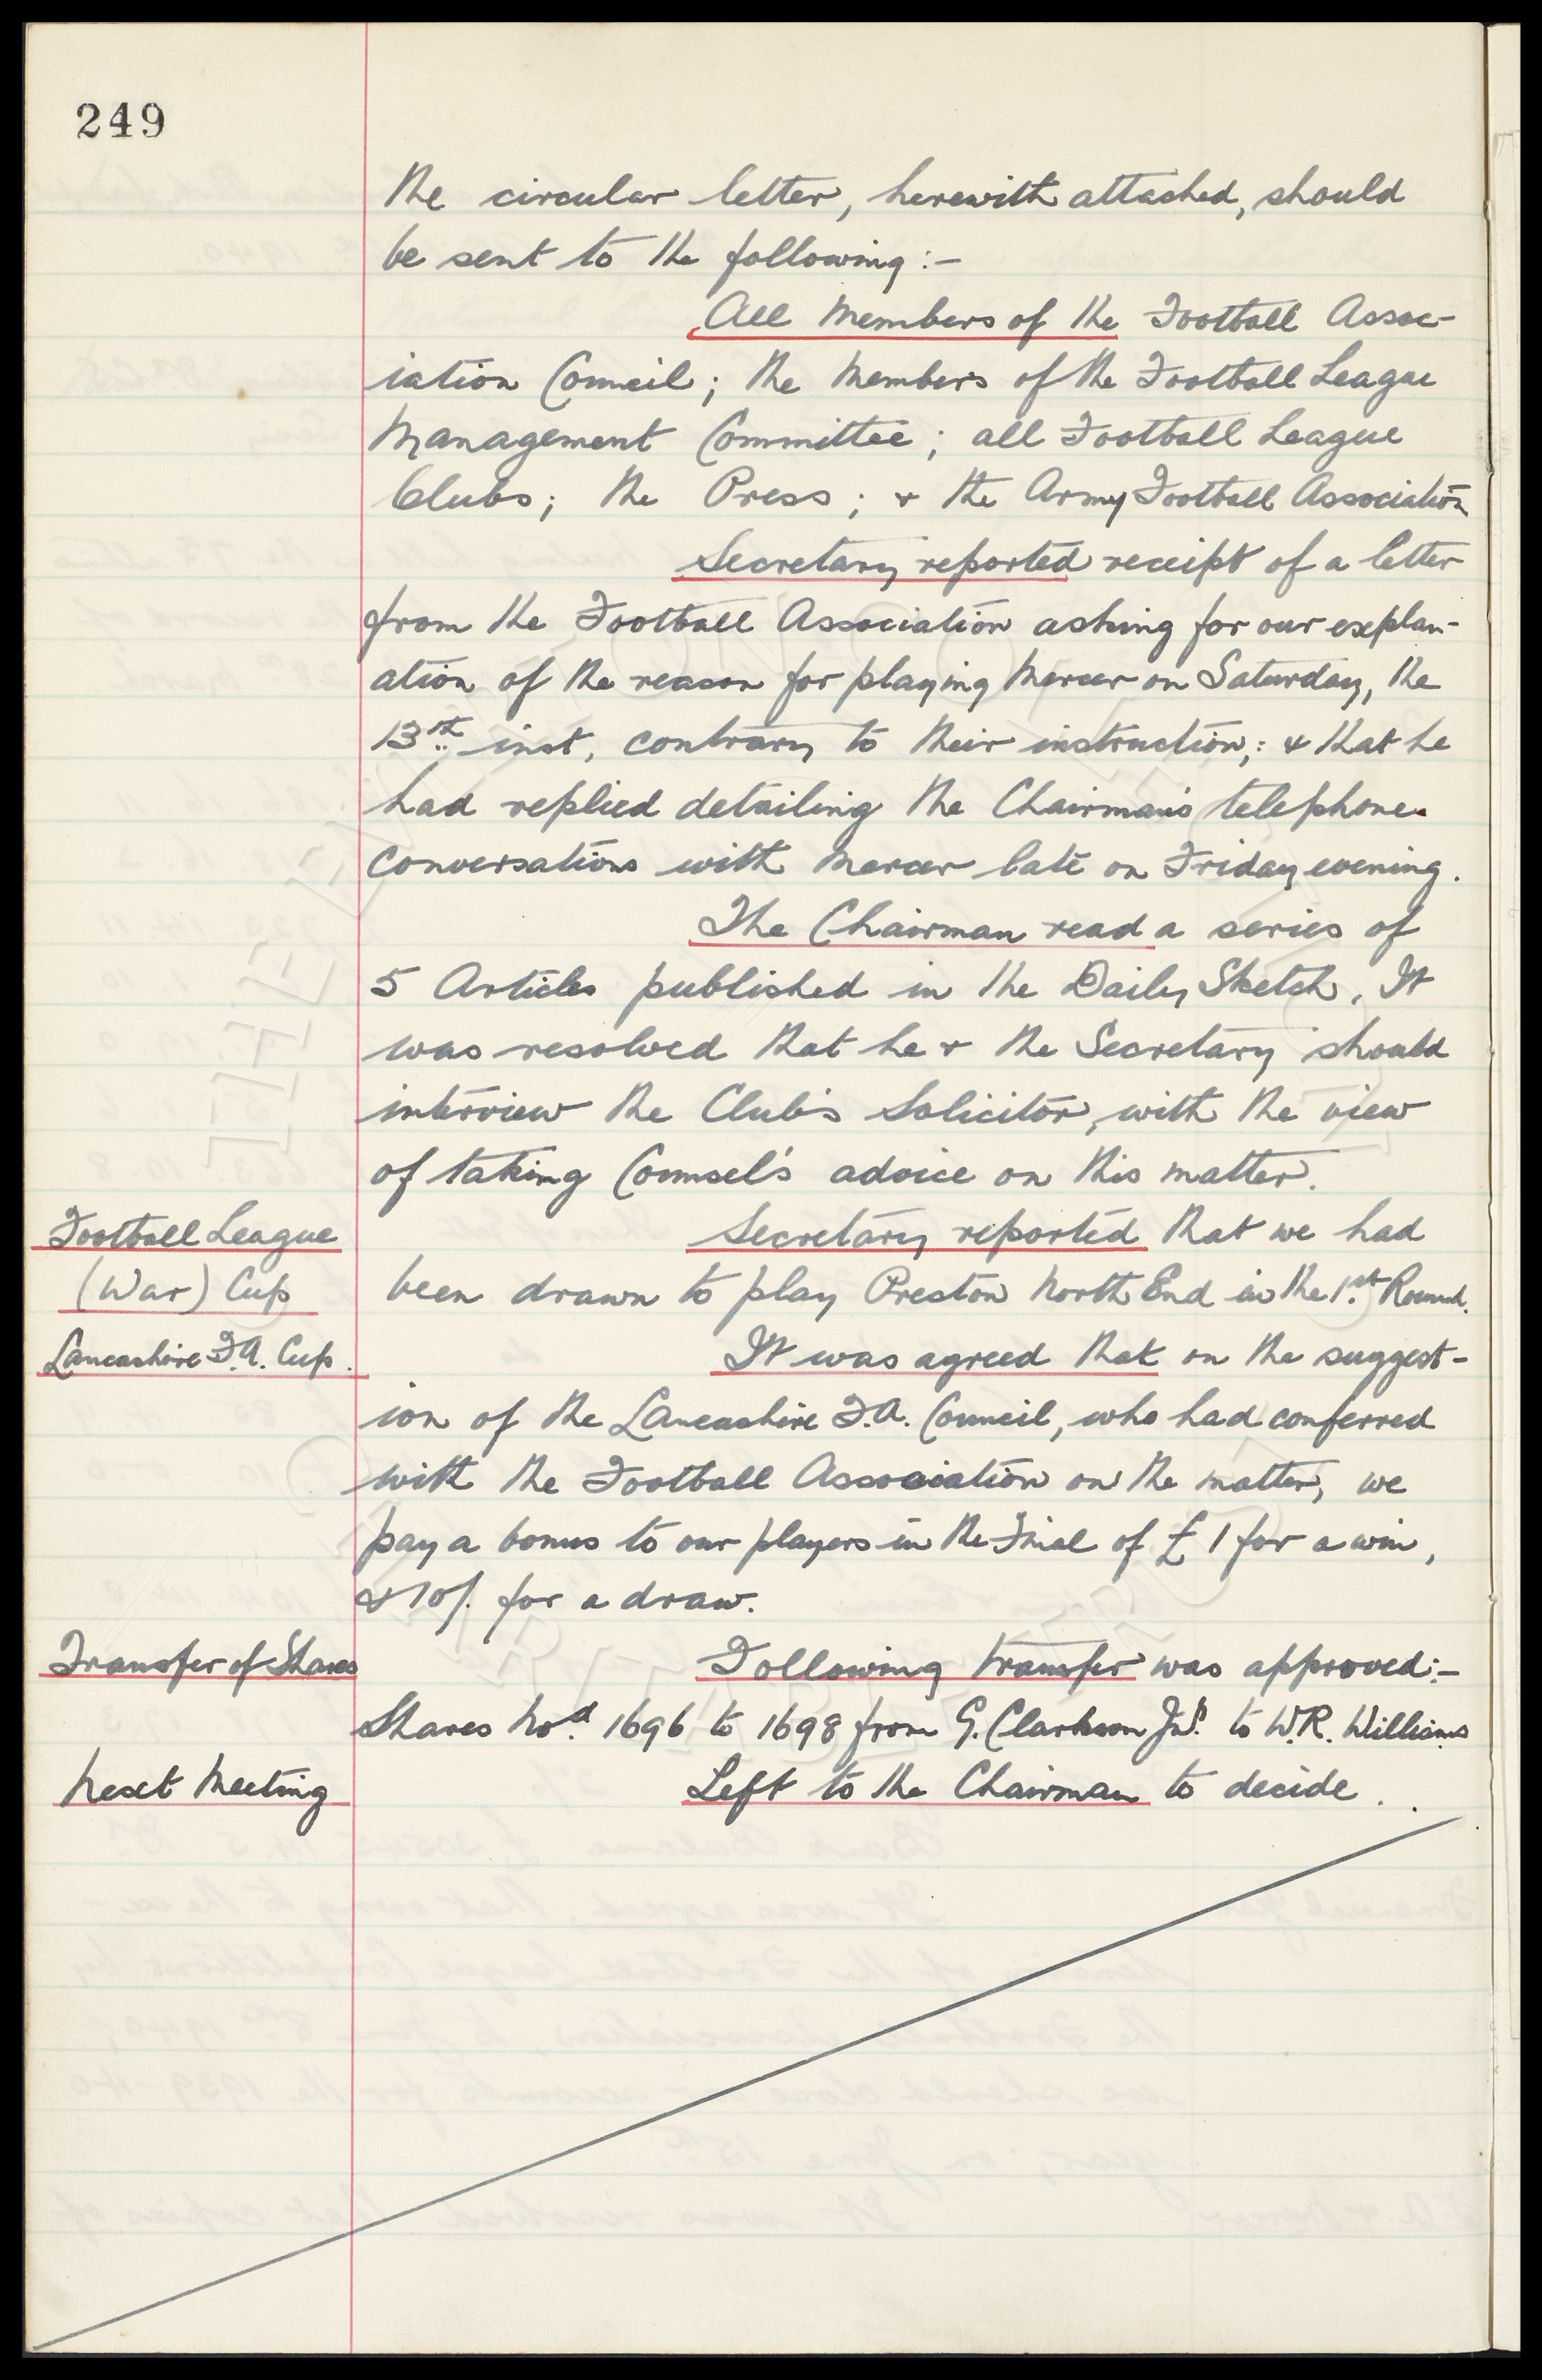 249
the circular letter, herewith attached, should
be sent to the following :-
All Members of the Football Assoc-
iation Council; the Members of the Football League
Management Committee; all Football League
Clubs; the Press; & the Army Football Association
Secretary reported receipt of a letter
from the Football Association asking for our explan-
ation of the reason for playing Mercer on Saturday, the
13th inst, contrary to their instruction; & that he
had replied detailing the Chairman's telephone
conversations with Mercer late on Friday evening.
The Chairman read a series of
5 Articles published in the Daily Sketch. It
was resolved that he & the Secretary should
interview the Club's Solicitor, with the view
of taking Counsel's advice on this matter.
Football League
(War) Cup
Secretary reported that we had
been drawn to play Preston North End in the 1st Round.
Lancashire F.A. Cup.
It was agreed that on the suggest-
ion of the Lancashire F.A. Council, who had conferred
with the Football Association on the matter, we
pay a bonus to our players in the Final of £1 for a win,
& 10/. for a draw.
Transfer of Shares
Following transfer was approved:-
Shares Nod. 1696 to 1698 from G. Clarkson Jnr. to W.R. Williams
Next Meeting
Left to the Chairman to decide.